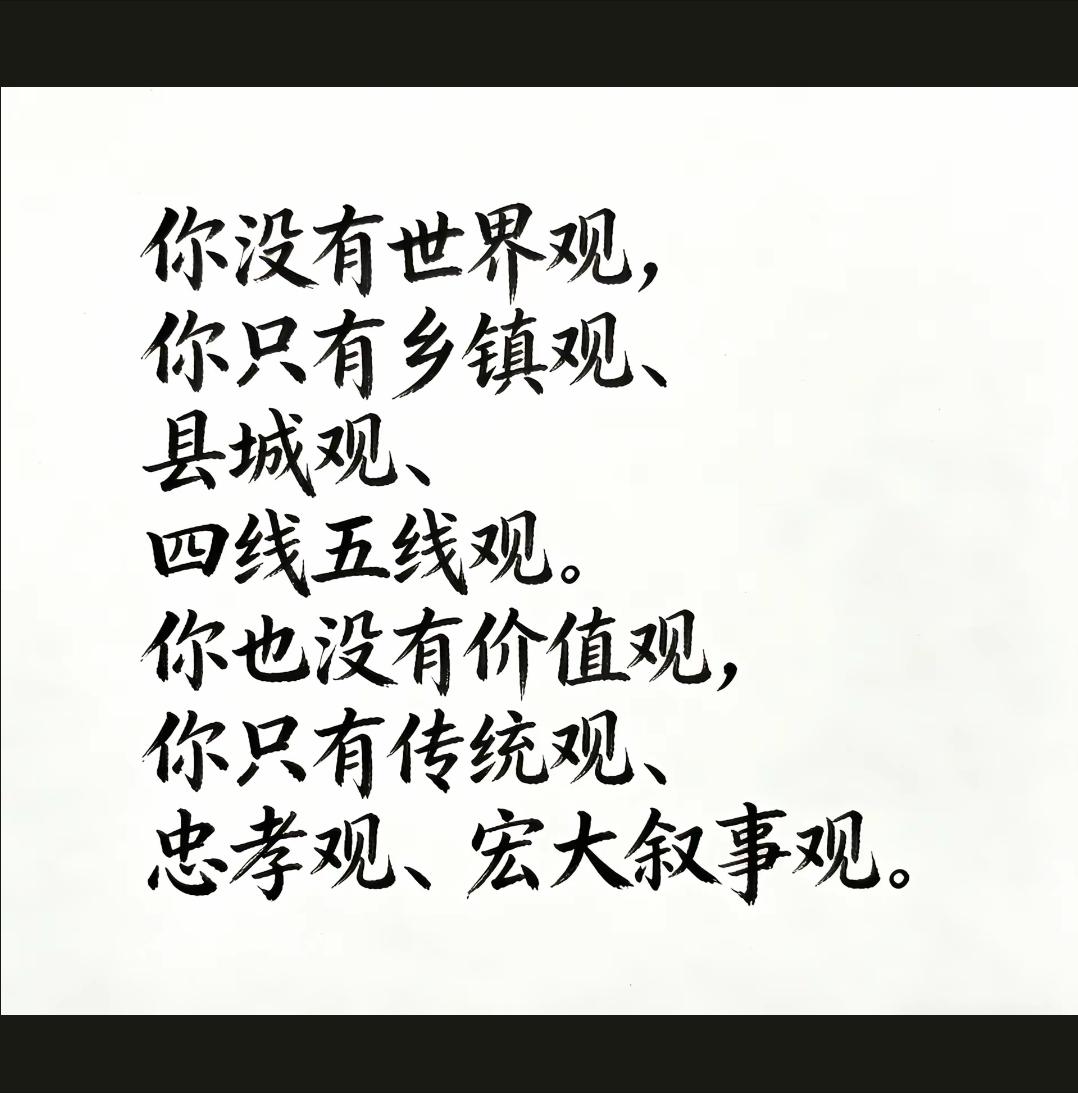 你没有世界观，
你只有乡镇观、
县城观、
四线五线观。
你也没有价值观，
你只有传统观、
忠孝观、宏大叙事观。